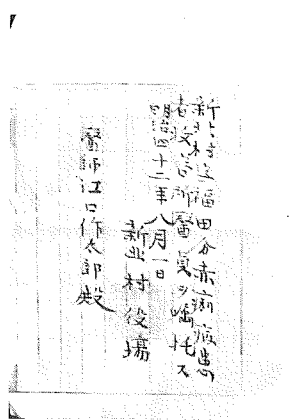 新北村立福田分赤痢病患
者收容所醫員ヲ囑托ス
明治四十二年八月一日
新北村役場
醫師江口作太郎殿